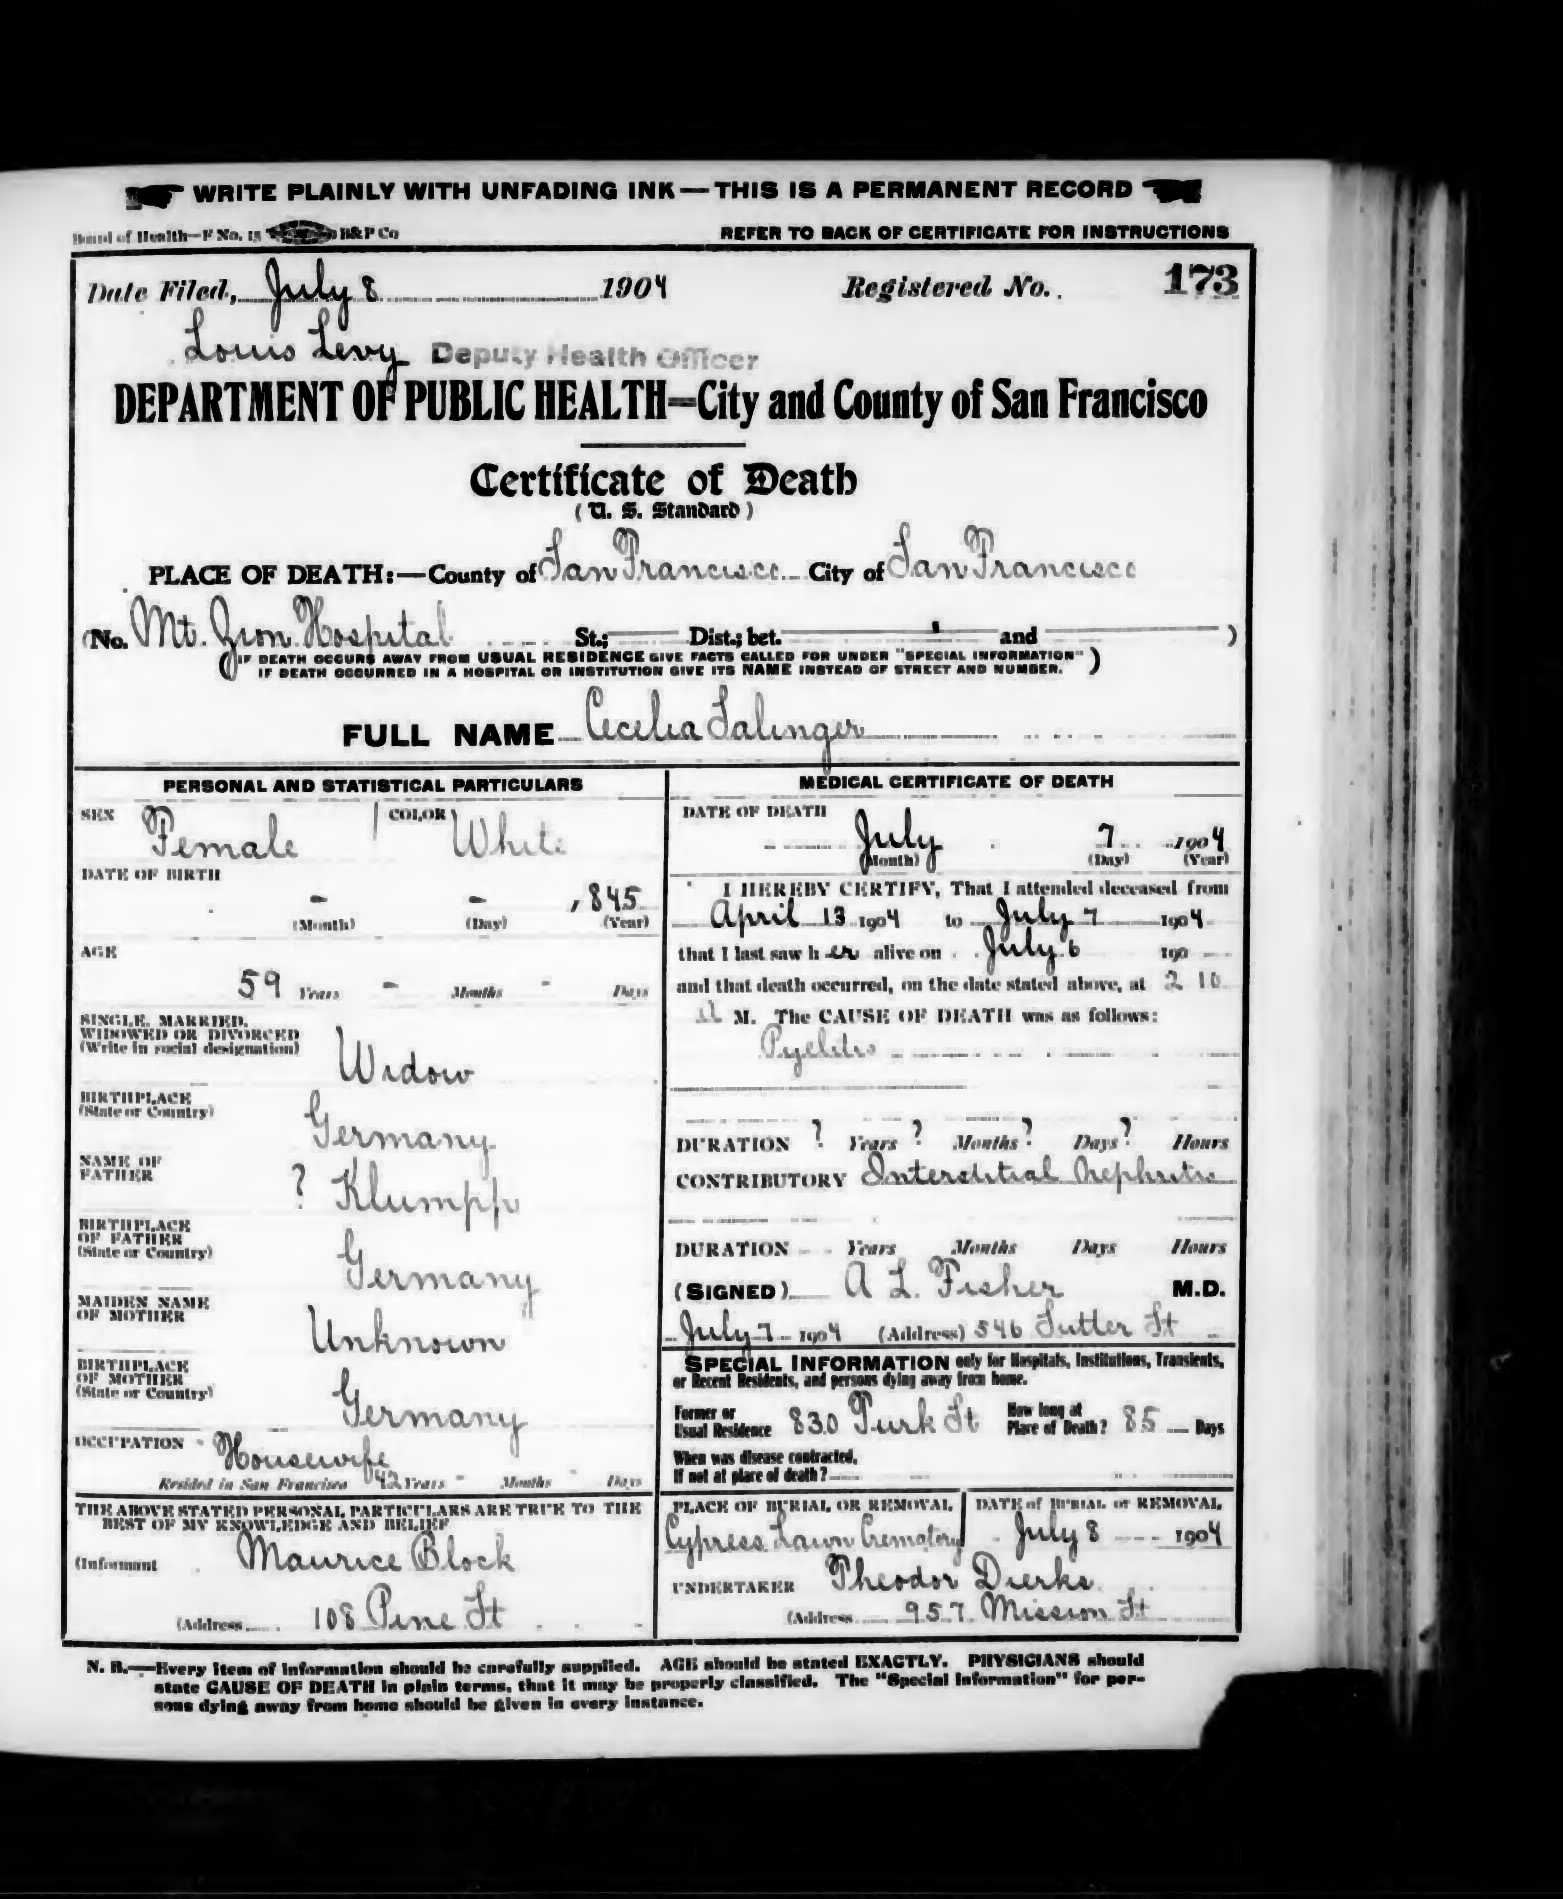 WRITE PLAINLY WITH UNFADING INK—THIS IS A PERMANENT RECORD
Board of Health—F No. 15 B&P Co
REFER TO BACK OF CERTIFICATE FOR INSTRUCTIONS
Date Filed, July 8 1904 Registered No. 173
Louis Levy Deputy Health Officer
DEPARTMENT OF PUBLIC HEALTH=City and County of San Francisco
Certificate of Death
(U. S. Standard)
PLACE OF DEATH:—County of San Francisco City of San Francisco
(No. Mt. Zion Hospital St.; Dist.; bet. and )
(IF DEATH OCCURS AWAY FROM USUAL RESIDENCE GIVE FACTS CALLED FOR UNDER "SPECIAL INFORMATION"
IF DEATH OCCURRED IN A HOSPITAL OR INSTITUTION GIVE ITS NAME INSTEAD OF STREET AND NUMBER.)
FULL NAME Cecelia Salinger
PERSONAL AND STATISTICAL PARTICULARS
SEX Female COLOR White
DATE OF BIRTH
- - ,845
(Month) (Day) (Year)
AGE
59 Years - Months - Days
SINGLE, MARRIED,
WIDOWED OR DIVORCED
(Write in social designation)
Widow
BIRTHPLACE
(State or Country)
Germany
NAME OF
FATHER
? Klumpp
BIRTHPLACE
OF FATHER
(State or Country)
Germany
MAIDEN NAME
OF MOTHER
Unknown
BIRTHPLACE
OF MOTHER
(State or Country)
Germany
OCCUPATION Housewife
Resided in San Francisco 42 Years - Months - Days
THE ABOVE STATED PERSONAL PARTICULARS ARE TRUE TO THE
BEST OF MY KNOWLEDGE AND BELIEF
(Informant Maurice Block
(Address 108 Pine St
MEDICAL CERTIFICATE OF DEATH
DATE OF DEATH
July 7 1904
(Month) (Day) (Year)
I HEREBY CERTIFY, That I attended deceased from
April 13 1904 to July 7 1904
that I last saw her alive on July 6 190
and that death occurred, on the date stated above, at 2 10
M. The CAUSE OF DEATH was as follows:
Pyelitis
DURATION ? Years ? Months ? Days ? Hours
CONTRIBUTORY Interstitial Nephritis
DURATION Years Months Days Hours
(SIGNED) A L. Fisher M.D.
July 7 1904 (Address) 546 Sutter St
SPECIAL INFORMATION only for Hospitals, Institutions, Transients,
or Recent Residents, and persons dying away from home.
Former or
Usual Residence 830 Turk St How long at
Place of Death? 85 Days
When was disease contracted,
If not at place of death?
PLACE OF BURIAL OR REMOVAL DATE of BURIAL or REMOVAL
Cypress Lawn Crematory July 8 1904
UNDERTAKER Theodor Dierks
(Address 957 Mission St
N. B.—Every item of information should be carefully supplied. AGE should be stated EXACTLY. PHYSICIANS should
state CAUSE OF DEATH in plain terms, that it may be properly classified. The "Special Information" for per-
sons dying away from home should be given in every instance.